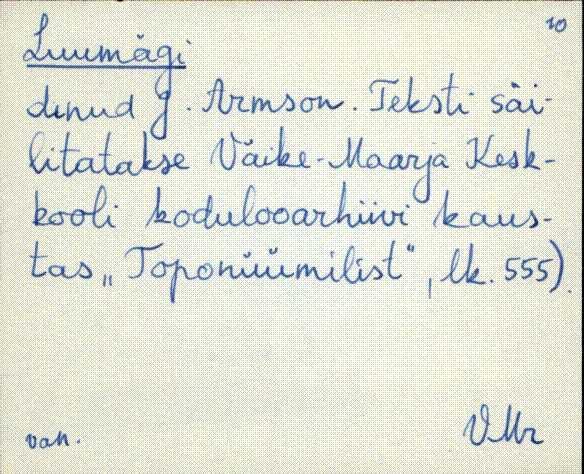 10
Luumägi
dinud J. Armson. Teksti säi-
litatakse Väike-Maarja Kesk-
kooli kodulooarhiivi kaus-
tas „Toponüümilist“, lk. 555).
van.
VMr